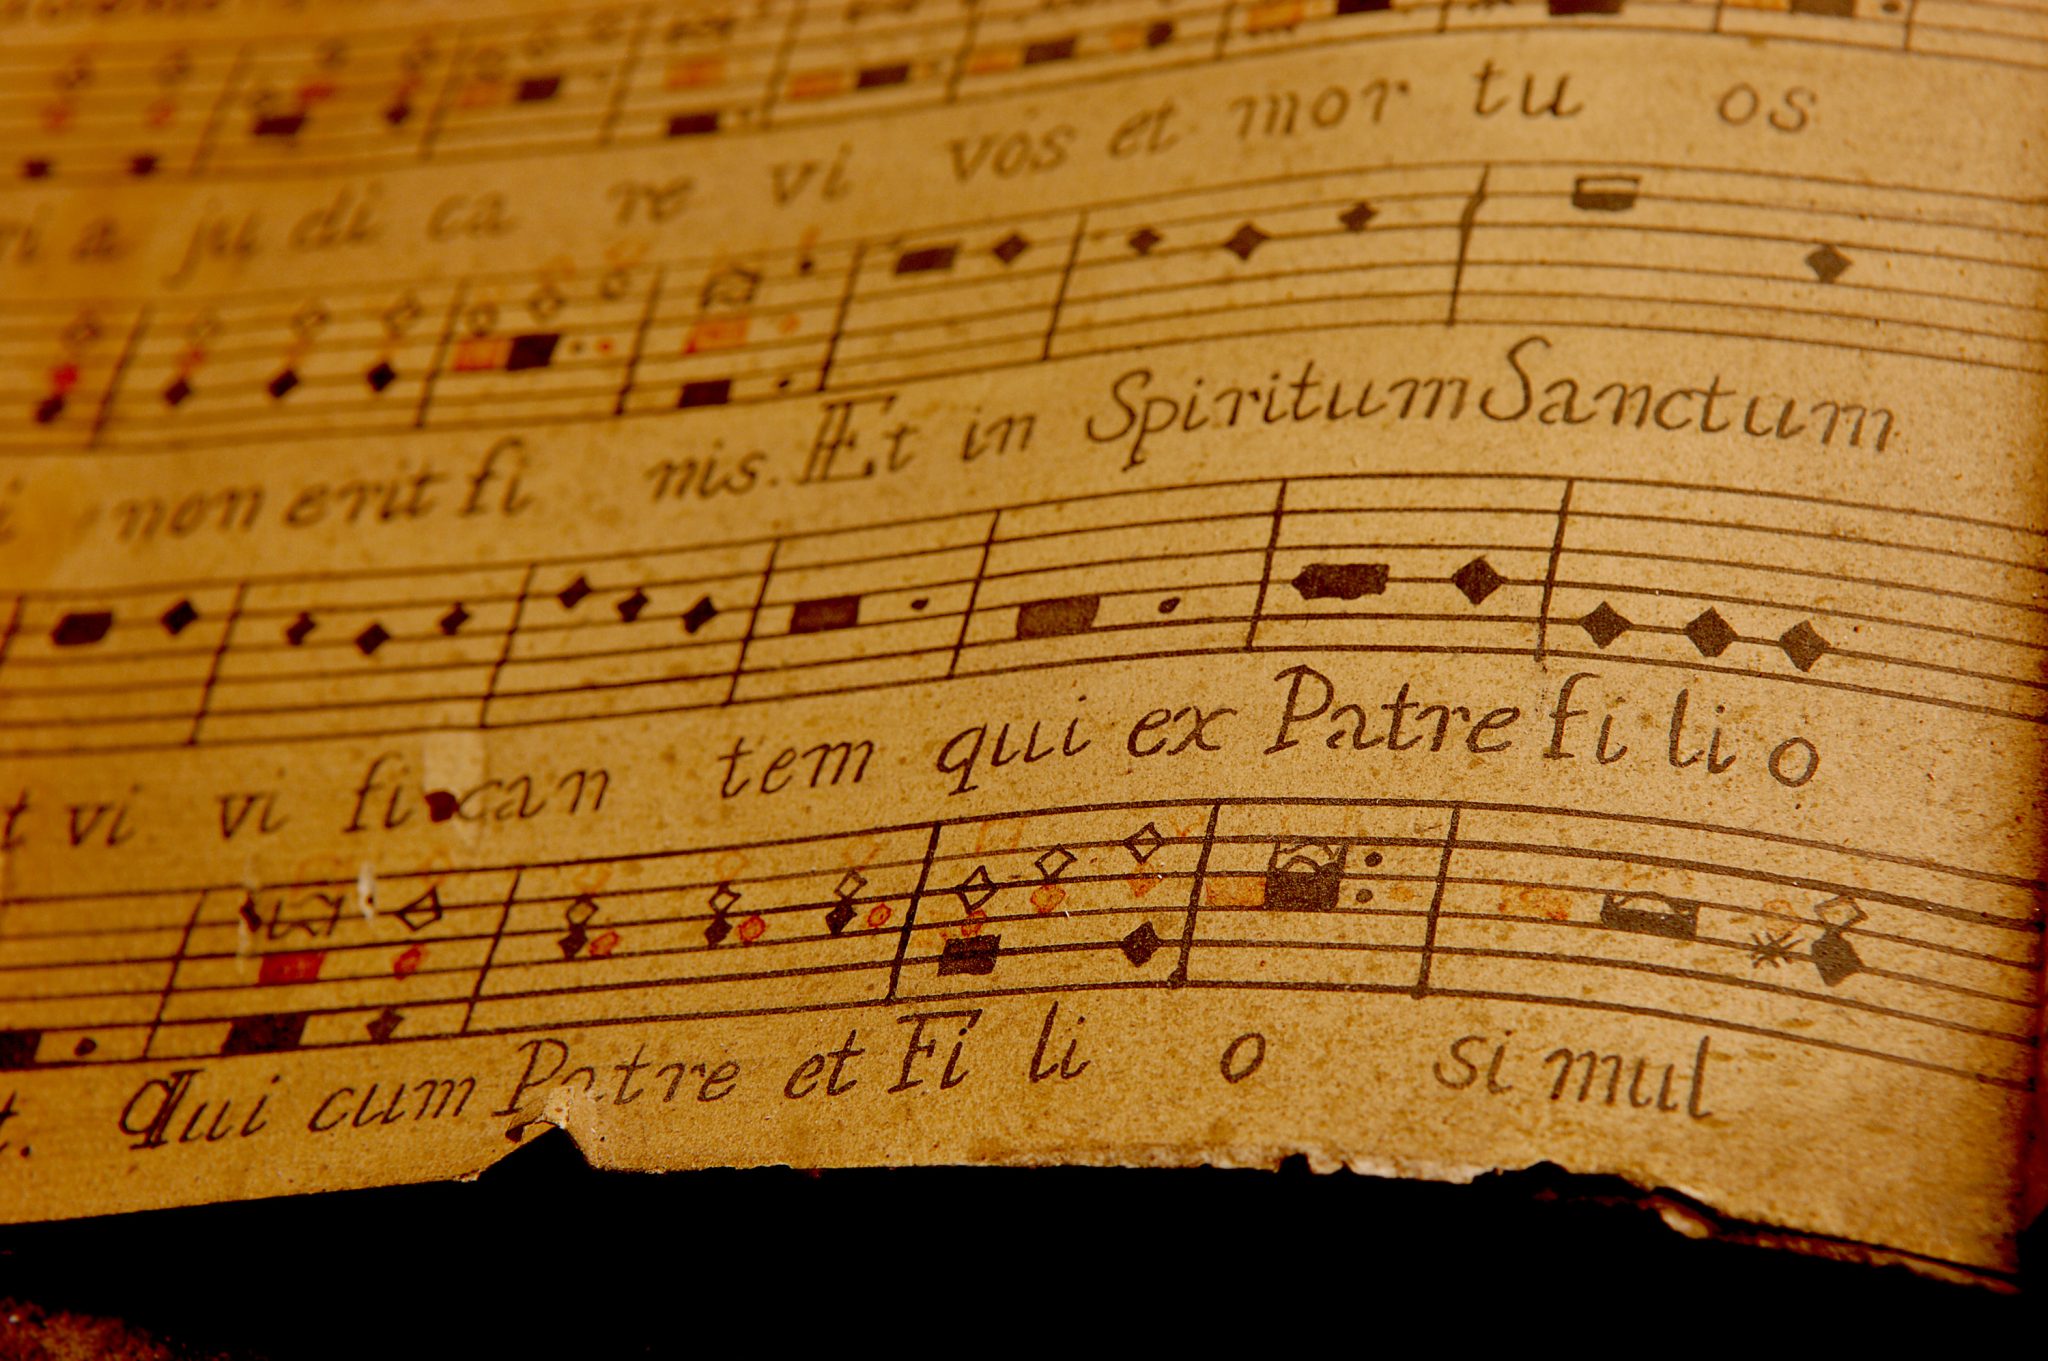 ri a ju di ca re vi vos et mor tu os
i non erit fi nis. Et in Spiritum Sanctum
t vi vi fi can tem qui ex Patre fi li o
t. Qui cum Patre et Fi li o si mul